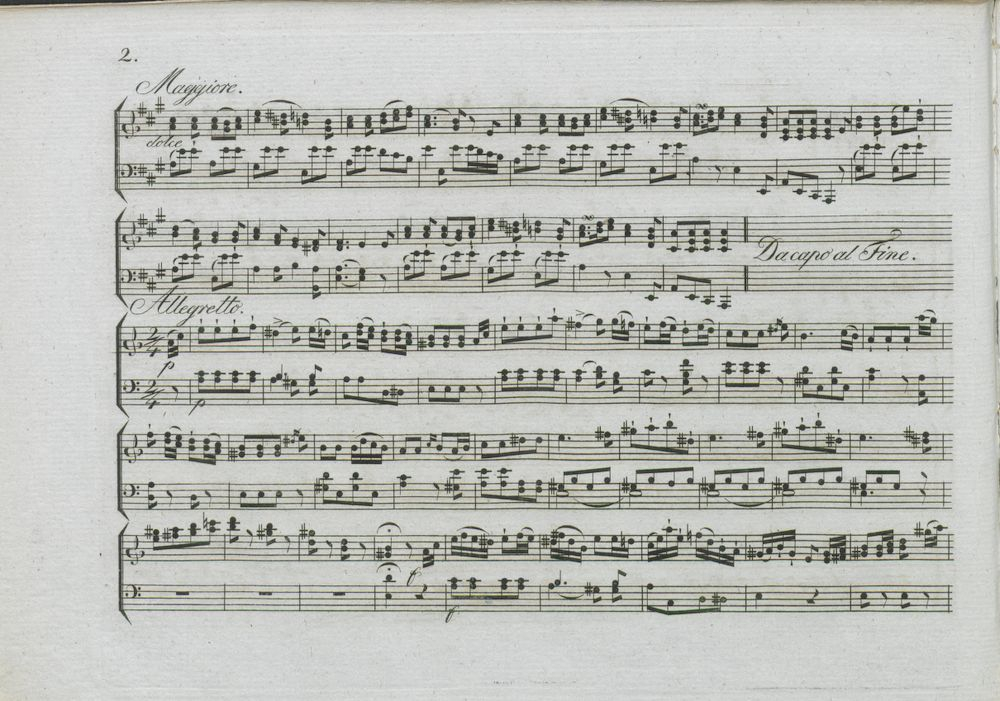 2.
Maggiore.
dolce
Da capo al Fine.
Allegretto.
2/4
p
2/4
p
f
f